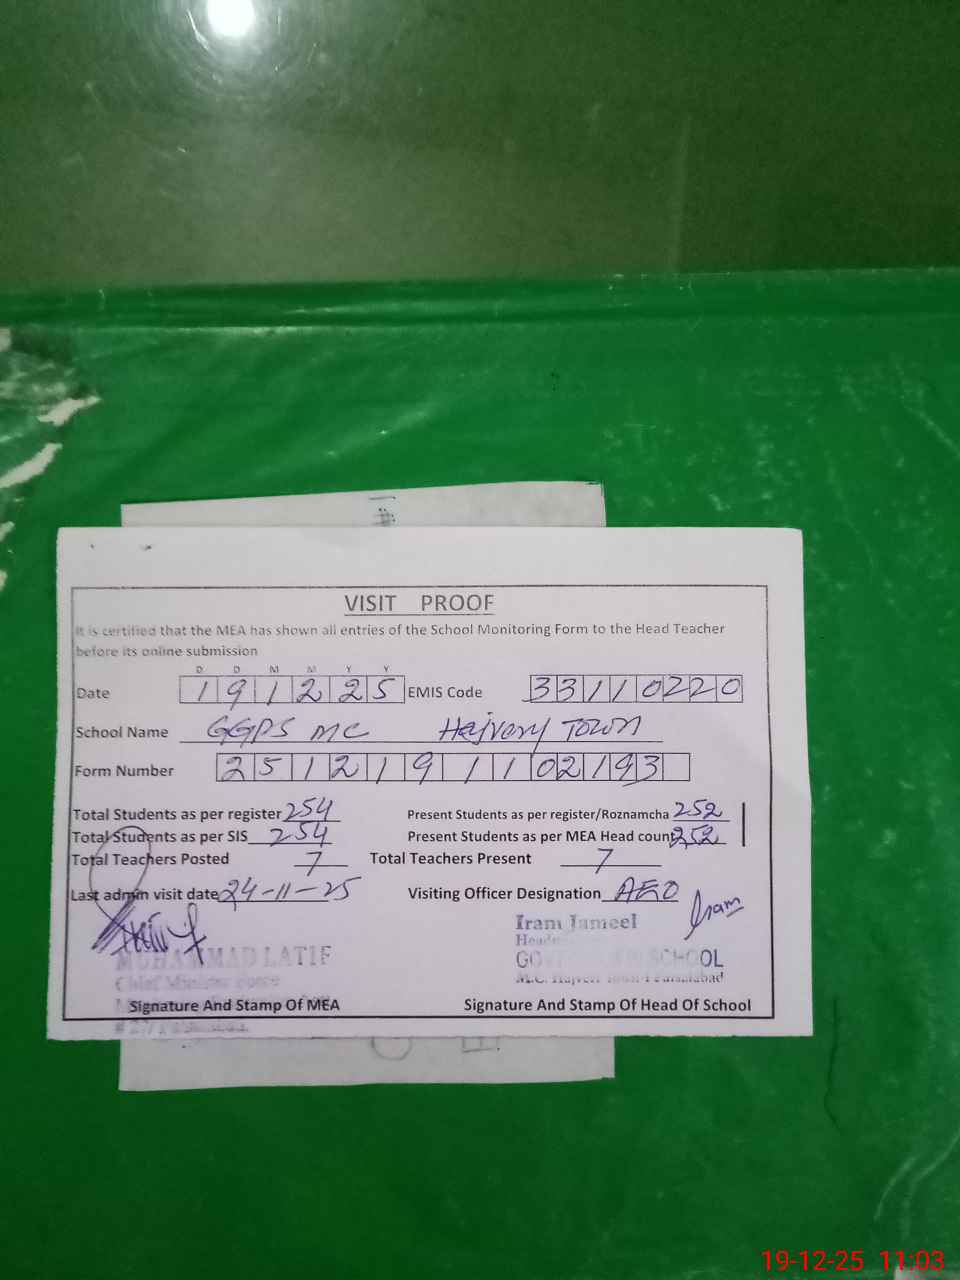 VISIT PROOF
It is certified that the MEA has shown all entries of the School Monitoring Form to the Head Teacher
before its online submission
D D M M Y Y
Date 191225 EMIS Code 33110220
School Name GGPS MC Hajvery Town
Form Number 251219 1102193
Total Students as per register 254 Present Students as per register/Roznamcha 252
Total Students as per SIS 254 Present Students as per MEA Head count 252
Total Teachers Posted 7 Total Teachers Present 7
Last admin visit date 24-11-25 Visiting Officer Designation AEO
Iram
Iram Jameel
MUHAMMAD LATIF SCHOOL
Chief Minister Force M.C. Faisalabad
Signature And Stamp Of MEA Signature And Stamp Of Head Of School
19-12-25 11:03